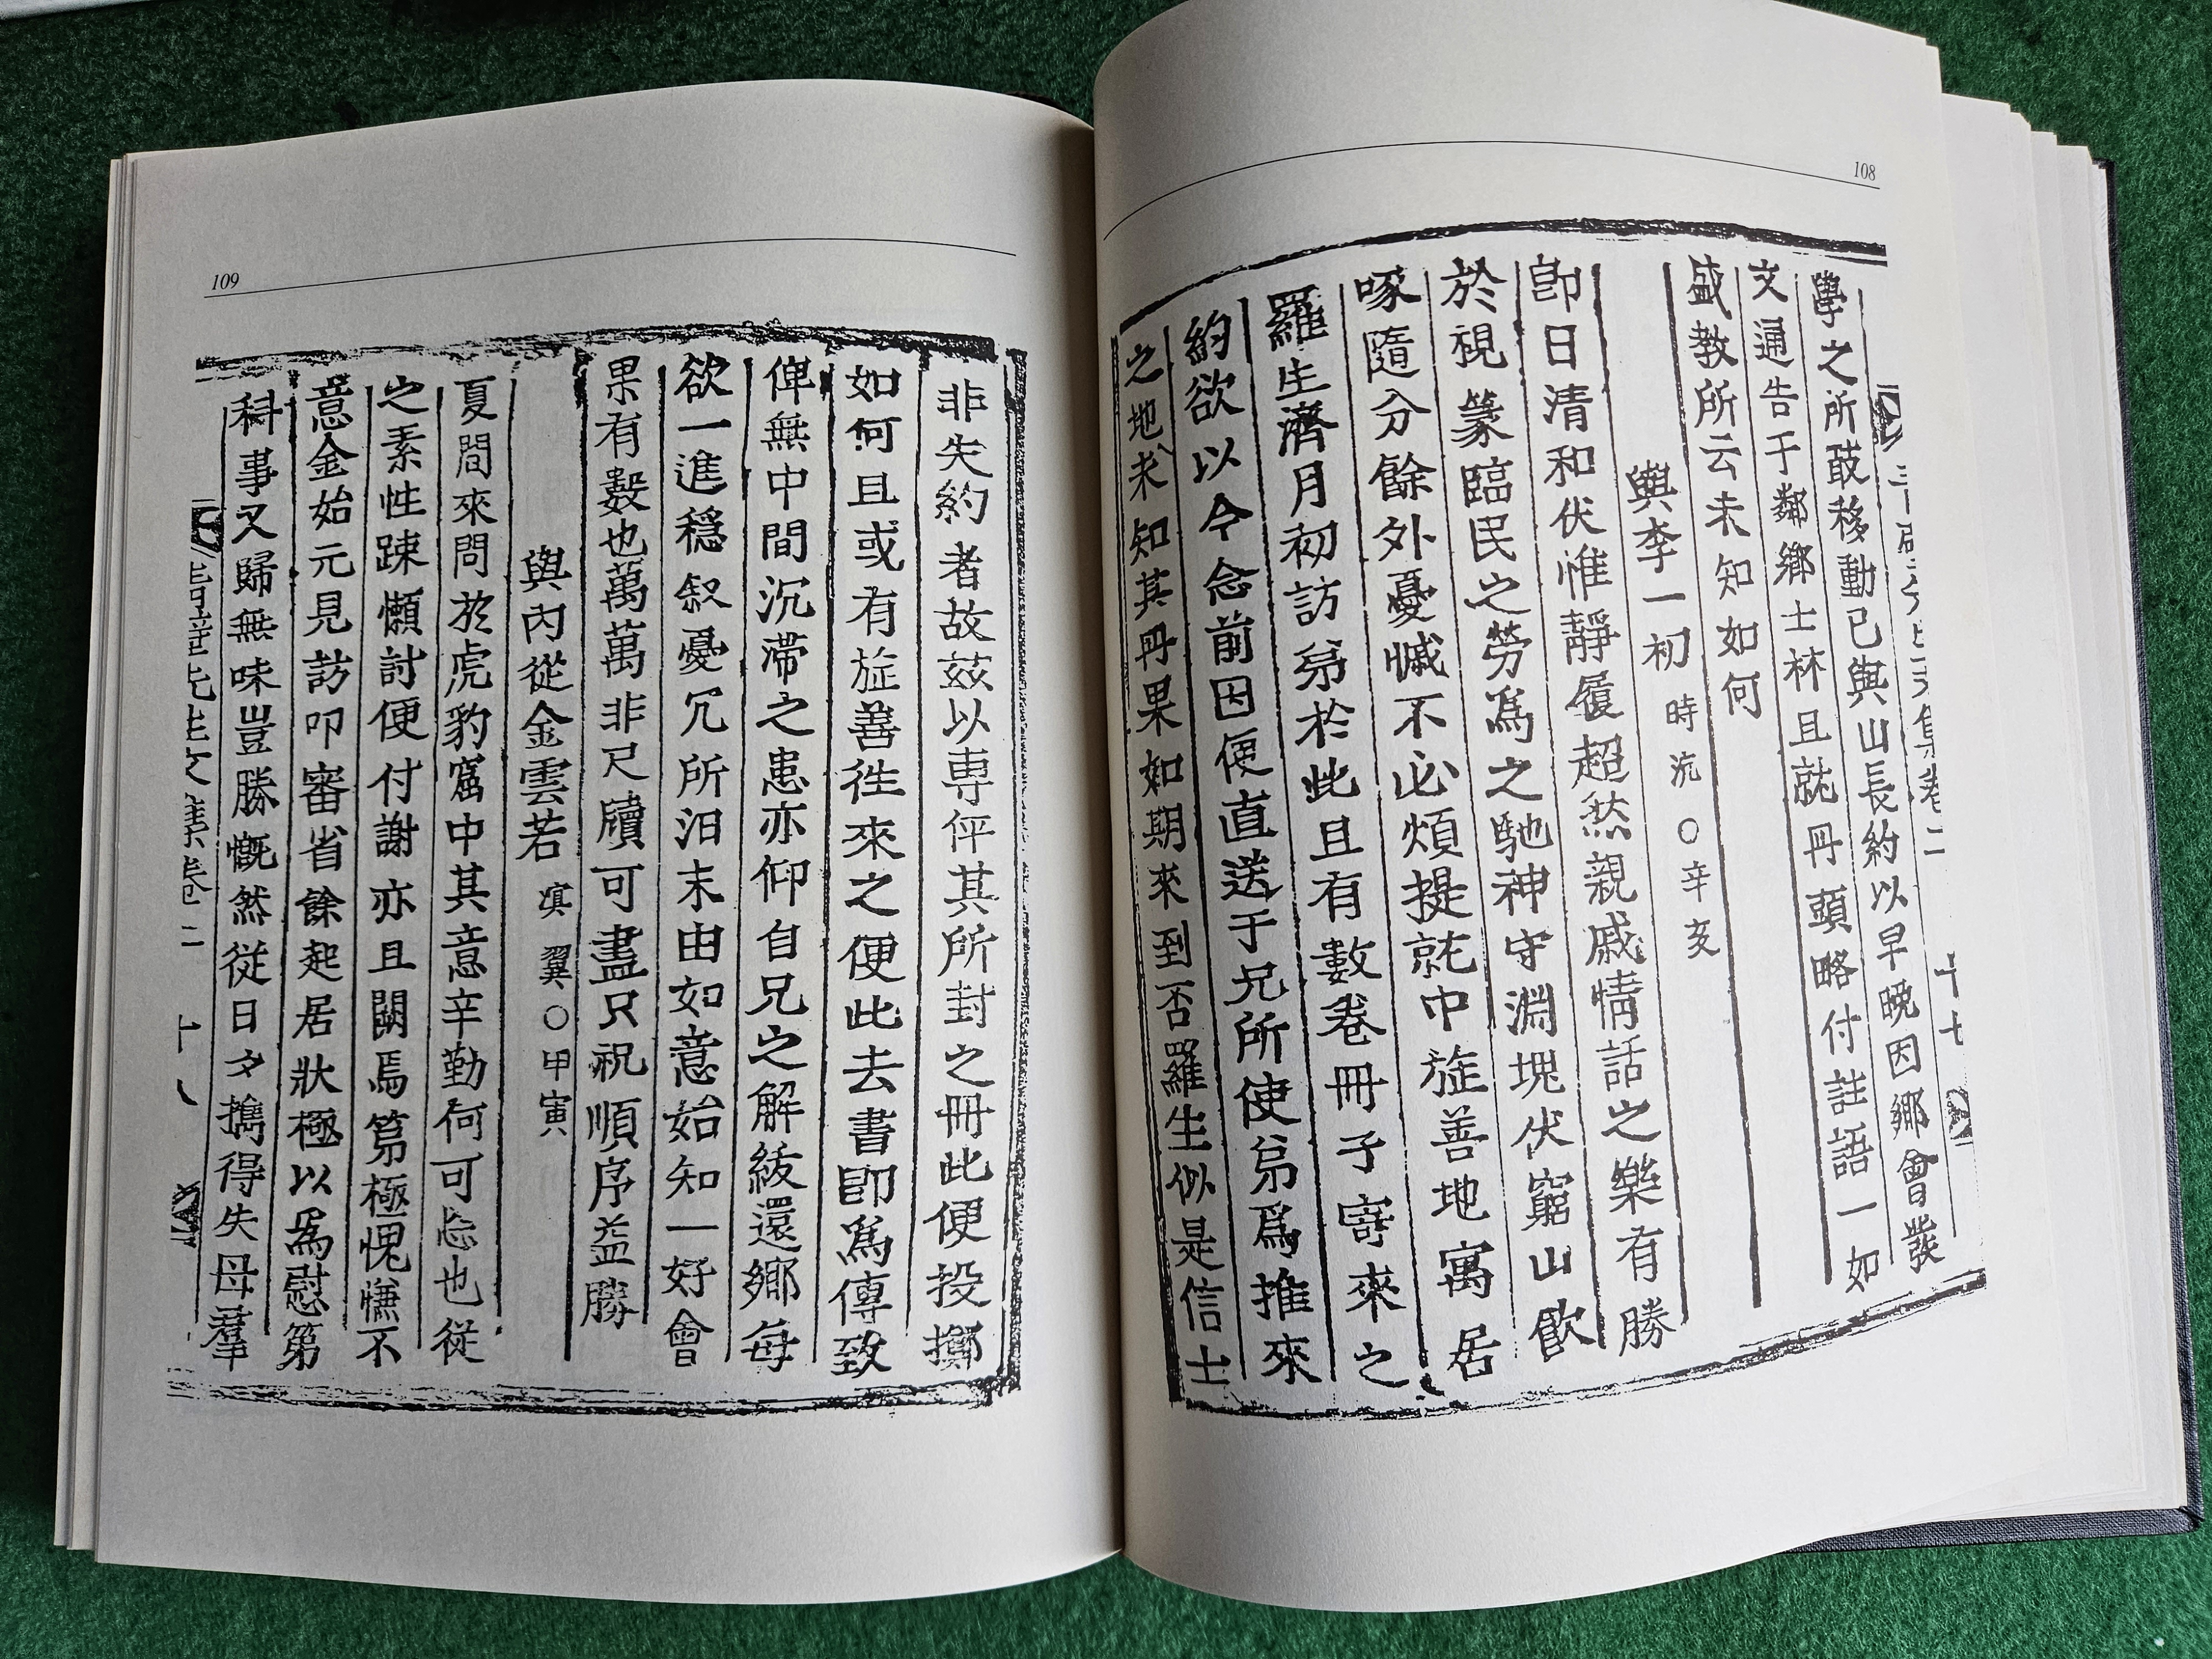 108
學之所敢移動已與山長約以早晚因鄕會發
文通告于鄰鄕士林且就丹頭略付註語一如
盛教所云未知如何
與李一初 時沆○辛亥
卽日清和伏惟靜履超然親戚情話之樂有勝
於視篆臨民之勞爲之馳神守淵塊伏窮山飮
啄隨分餘外憂慽不必煩提就中旌善地寓居
羅生濟月初訪弟於此且有數卷冊子寄來之
約欲以今念前因便直送于兄所使弟爲推來
之地未知其丹果如期來到否羅生似是信士
109
非失約者故玆以專伻其所封之冊此便投擲
如何且或有旌善徃來之便此去書卽爲傳致
俾無中間沉滯之患亦仰自兄之解紱還鄕每
欲一進穩叙憂冗所汨末由如意始知一好會
果有數也萬萬非尺牘可盡只祝順序益勝
與內從金雲若 淇翼○甲寅
夏間來問於虎豹窟中其意辛勤何可忘也從
之素性踈懶討便付謝亦且闕焉第極愧慊不
意金始元見訪叩審省餘起居狀極以爲慰第
科事又歸無味豈勝慨然從日夕擕得失母羣
先生文集卷二 十八